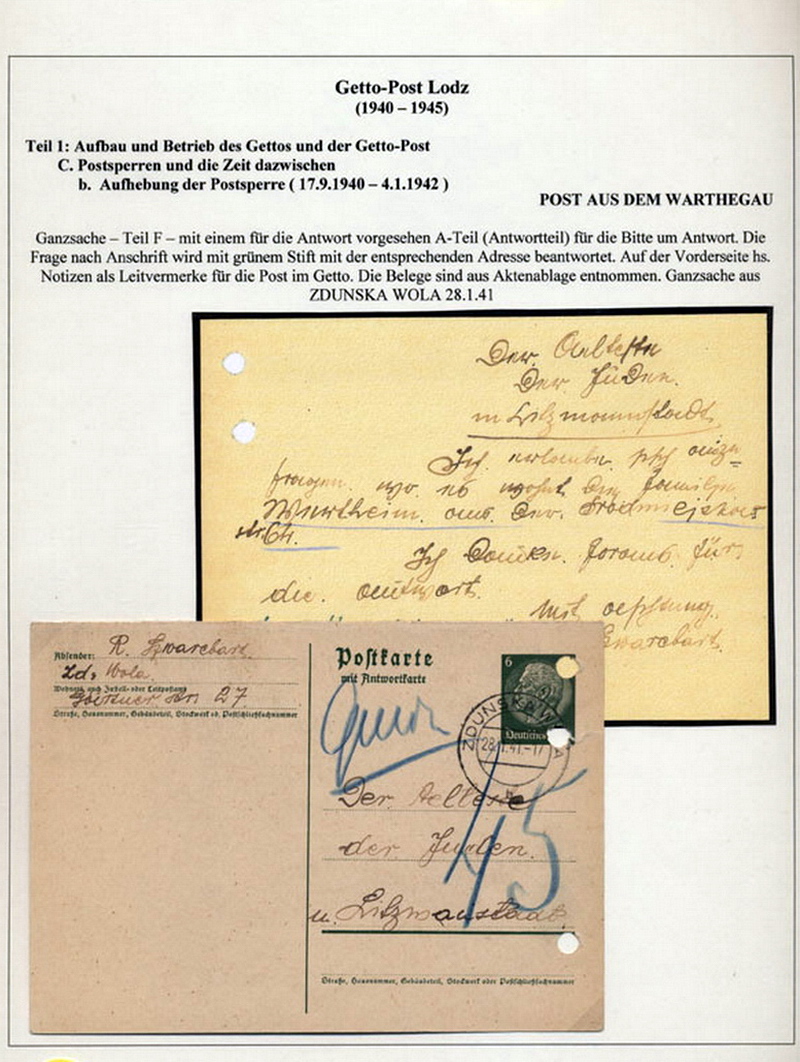 Getto-Post Lodz
(1940 – 1945)
Teil 1: Aufbau und Betrieb des Gettos und der Getto-Post
C. Postsperren und die Zeit dazwischen
b. Aufhebung der Postsperre ( 17.9.1940 – 4.1.1942 )
POST AUS DEM WARTHEGAU
Ganzsache – Teil F – mit einem für die Antwort vorgesehen A-Teil (Antwortteil) für die Bitte um Antwort. Die
Frage nach Anschrift wird mit grünem Stift mit der entsprechenden Adresse beantwortet. Auf der Vorderseite hs.
Notizen als Leitvermerke für die Post im Getto. Die Belege sind aus Aktenablage entnommen. Ganzsache aus
ZDUNSKA WOLA 28.1.41
Der Aelteste
Der Juden.
in Litzmannstadt
Ich erlaube
fragen. wo es wohnt die
Wertheim. aus. der.
str.
Ich Danken. foraus. für
die. antwort.
Mit achtung.
Szwarcbart.
Absender: R. Szwarcbart
Zd. Wola.
Wohnort, auch Zustell- oder Leitpostamt
27
Straße, Hausnummer, Gebäudeteil, Stockwerk od. Postschließfachnummer
Postkarte
mit Antwortkarte
6
Deutsches
ZDUNSKA WOLA
28.1.41.-17
Der Aelteste
der Juden.
45
Litzmanstadt.
Straße, Hausnummer, Gebäudeteil, Stockwerk oder Postschließfachnummer